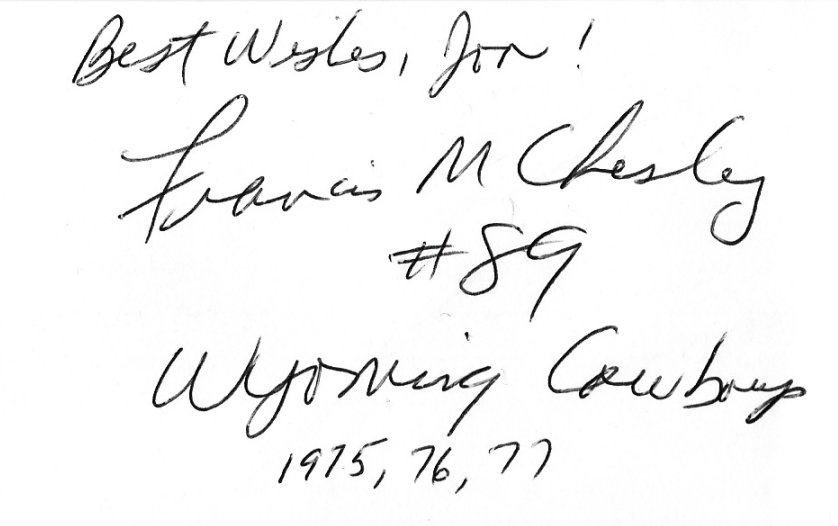 Best Wishes, Jon!
Francis M Chesley
#89
Wyoming Cowboys
1975, 76, 77